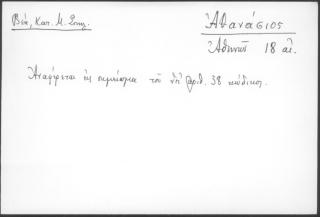 Βέη, Κατ. Μ. Σπηλ.
Ἀθανάσιος
Ἀθηνῶν 18 αἰ.
Ἀναφέρεται εἰς σημείωμα τοῦ ὑπ' ἀριθ. 38 κώδικος.